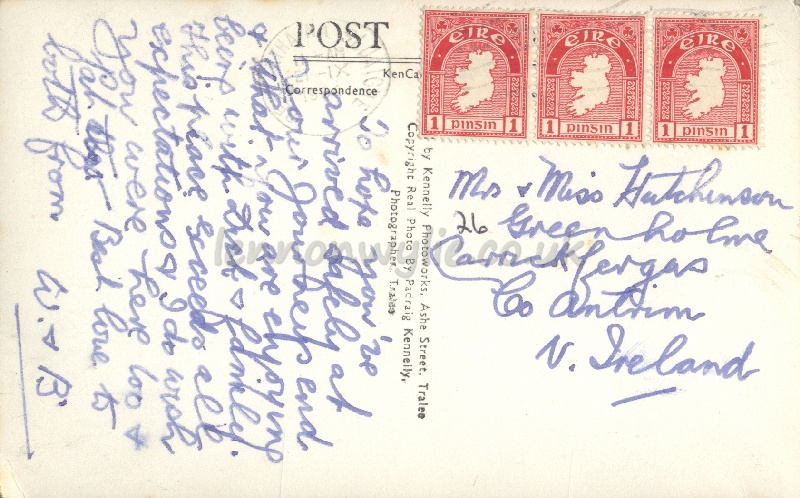 POST
KenCa
Correspondence
EIRE
1 pinsin 1
EIRE
1 pinsin 1
EIRE
1 pinsin 1
To hope you've
arrived safely at
your journeys end
& that you are enjoying
being with Dad & family.
This place exceeds all
expectations & I do wish
you were here too &
Best love to
both from
W. & B.
by Kennelly Photoworks, Ashe Street, Tralee
Copyright Real Photo By Padraig Kennelly,
Photographer, Tralee
Mrs & Miss Hutchinson
26 Greenholme
Carrickfergas
Co Antrim
N. Ireland
lennonwylie.co.uk